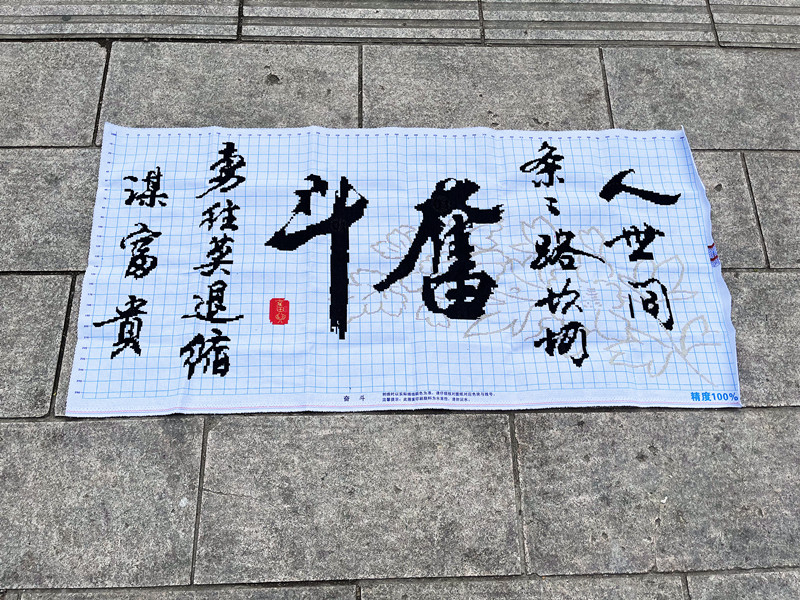 人世间
条々路坎坷
奮
斗
勇往莫退缩
谋富贵
奋 斗
精度100%